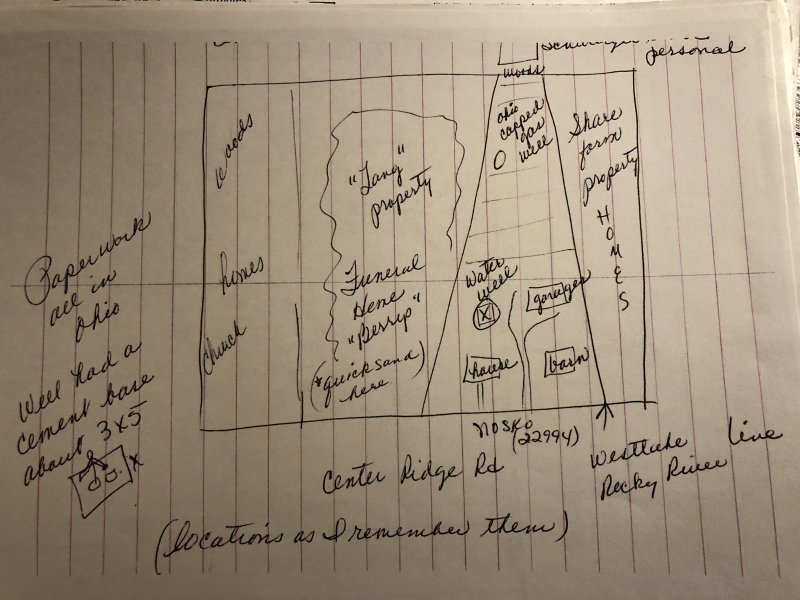 personal
woods
ohio
capped
gas
well
Share
farm
property
H
O
M
E
S
woods
"Lang"
property
homes
Funeral
Home
"Berrip"
(*quicksand
here)
Church
Water
well
X
garages
house
barn
Paperwork
all in
Ohio
Well had a
cement base
about 3x5
X
NOSKO
(22994)
Center Ridge Rd
Westlake line
Rocky River
(locations as I remember them)